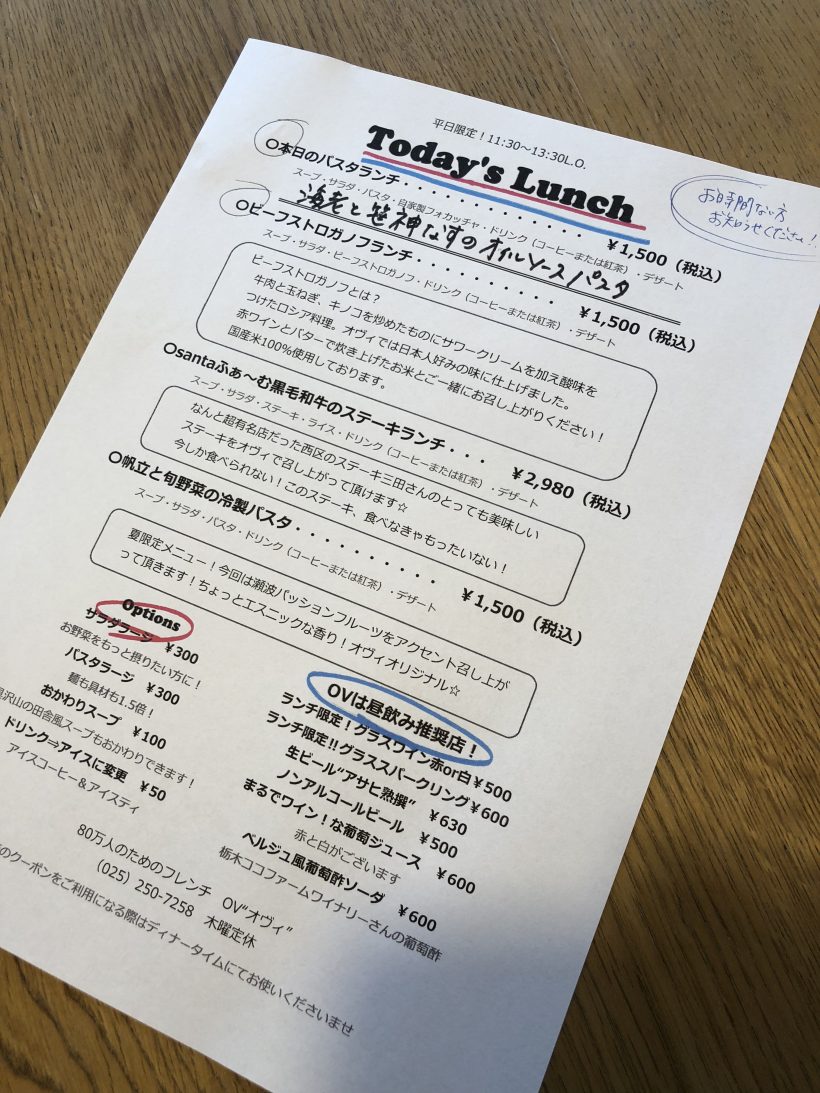 平日限定！11:30～13:30L.O.
Today's Lunch
お時間ない方
お知らせください！
〇本日のパスタランチ・・・・・・・・・・・・・・ ￥1,500（税込）
スープ・サラダ・パスタ・自家製フォカッチャ・ドリンク（コーヒーまたは紅茶）・デザート
海老と笹神なすのオイルソースパスタ
〇ビーフストロガノフランチ・・・・・・・・・・・ ￥1,500（税込）
スープ・サラダ・ビーフストロガノフ・ドリンク（コーヒーまたは紅茶）・デザート
ビーフストロガノフとは？
牛肉と玉ねぎ、キノコを炒めたものにサワークリームを加え酸味を
つけたロシア料理。オヴィでは日本人好みの味に仕上げました。
赤ワインとバターで炊き上げたお米とご一緒にお召し上がりください！
国産米100％使用しております。
〇santaふぁ～む黒毛和牛のステーキランチ・・・ ￥2,980（税込）
スープ・サラダ・ステーキ・ライス・ドリンク（コーヒーまたは紅茶）・デザート
なんと超有名店だった西区のステーキ三田さんのとっても美味しい
ステーキをオヴィで召し上がって頂けます☆
今しか食べられない！このステーキ、食べなきゃもったいない！
〇帆立と旬野菜の冷製パスタ・・・・・・・・・・ ￥1,500（税込）
スープ・サラダ・パスタ・ドリンク（コーヒーまたは紅茶）・デザート
夏限定メニュー！今回は瀬波パッションフルーツをアクセント召し上が
って頂きます！ちょっとエスニックな香り！オヴィオリジナル☆
Options
サラダラージ ￥300
お野菜をもっと摂りたい方に！
パスタラージ ￥300
麺も具材も1.5倍！
おかわりスープ ￥100
沢山の田舎風スープもおかわりできます！
ドリンク⇒アイスに変更 ￥50
アイスコーヒー＆アイスティ
OVは昼飲み推奨店！
ランチ限定！グラスワイン赤or白￥500
ランチ限定‼グラススパークリング￥600
生ビール“アサヒ熟撰” ￥630
ノンアルコールビール ￥500
まるでワイン！な葡萄ジュース ￥600
赤と白がございます
ベルジュ風葡萄酢ソーダ ￥600
栃木ココファームワイナリーさんの葡萄酢
80万人のためのフレンチ OV“オヴィ”
（025）250-7258 木曜定休
のクーポンをご利用になる際はディナータイムにてお使いくださいませ